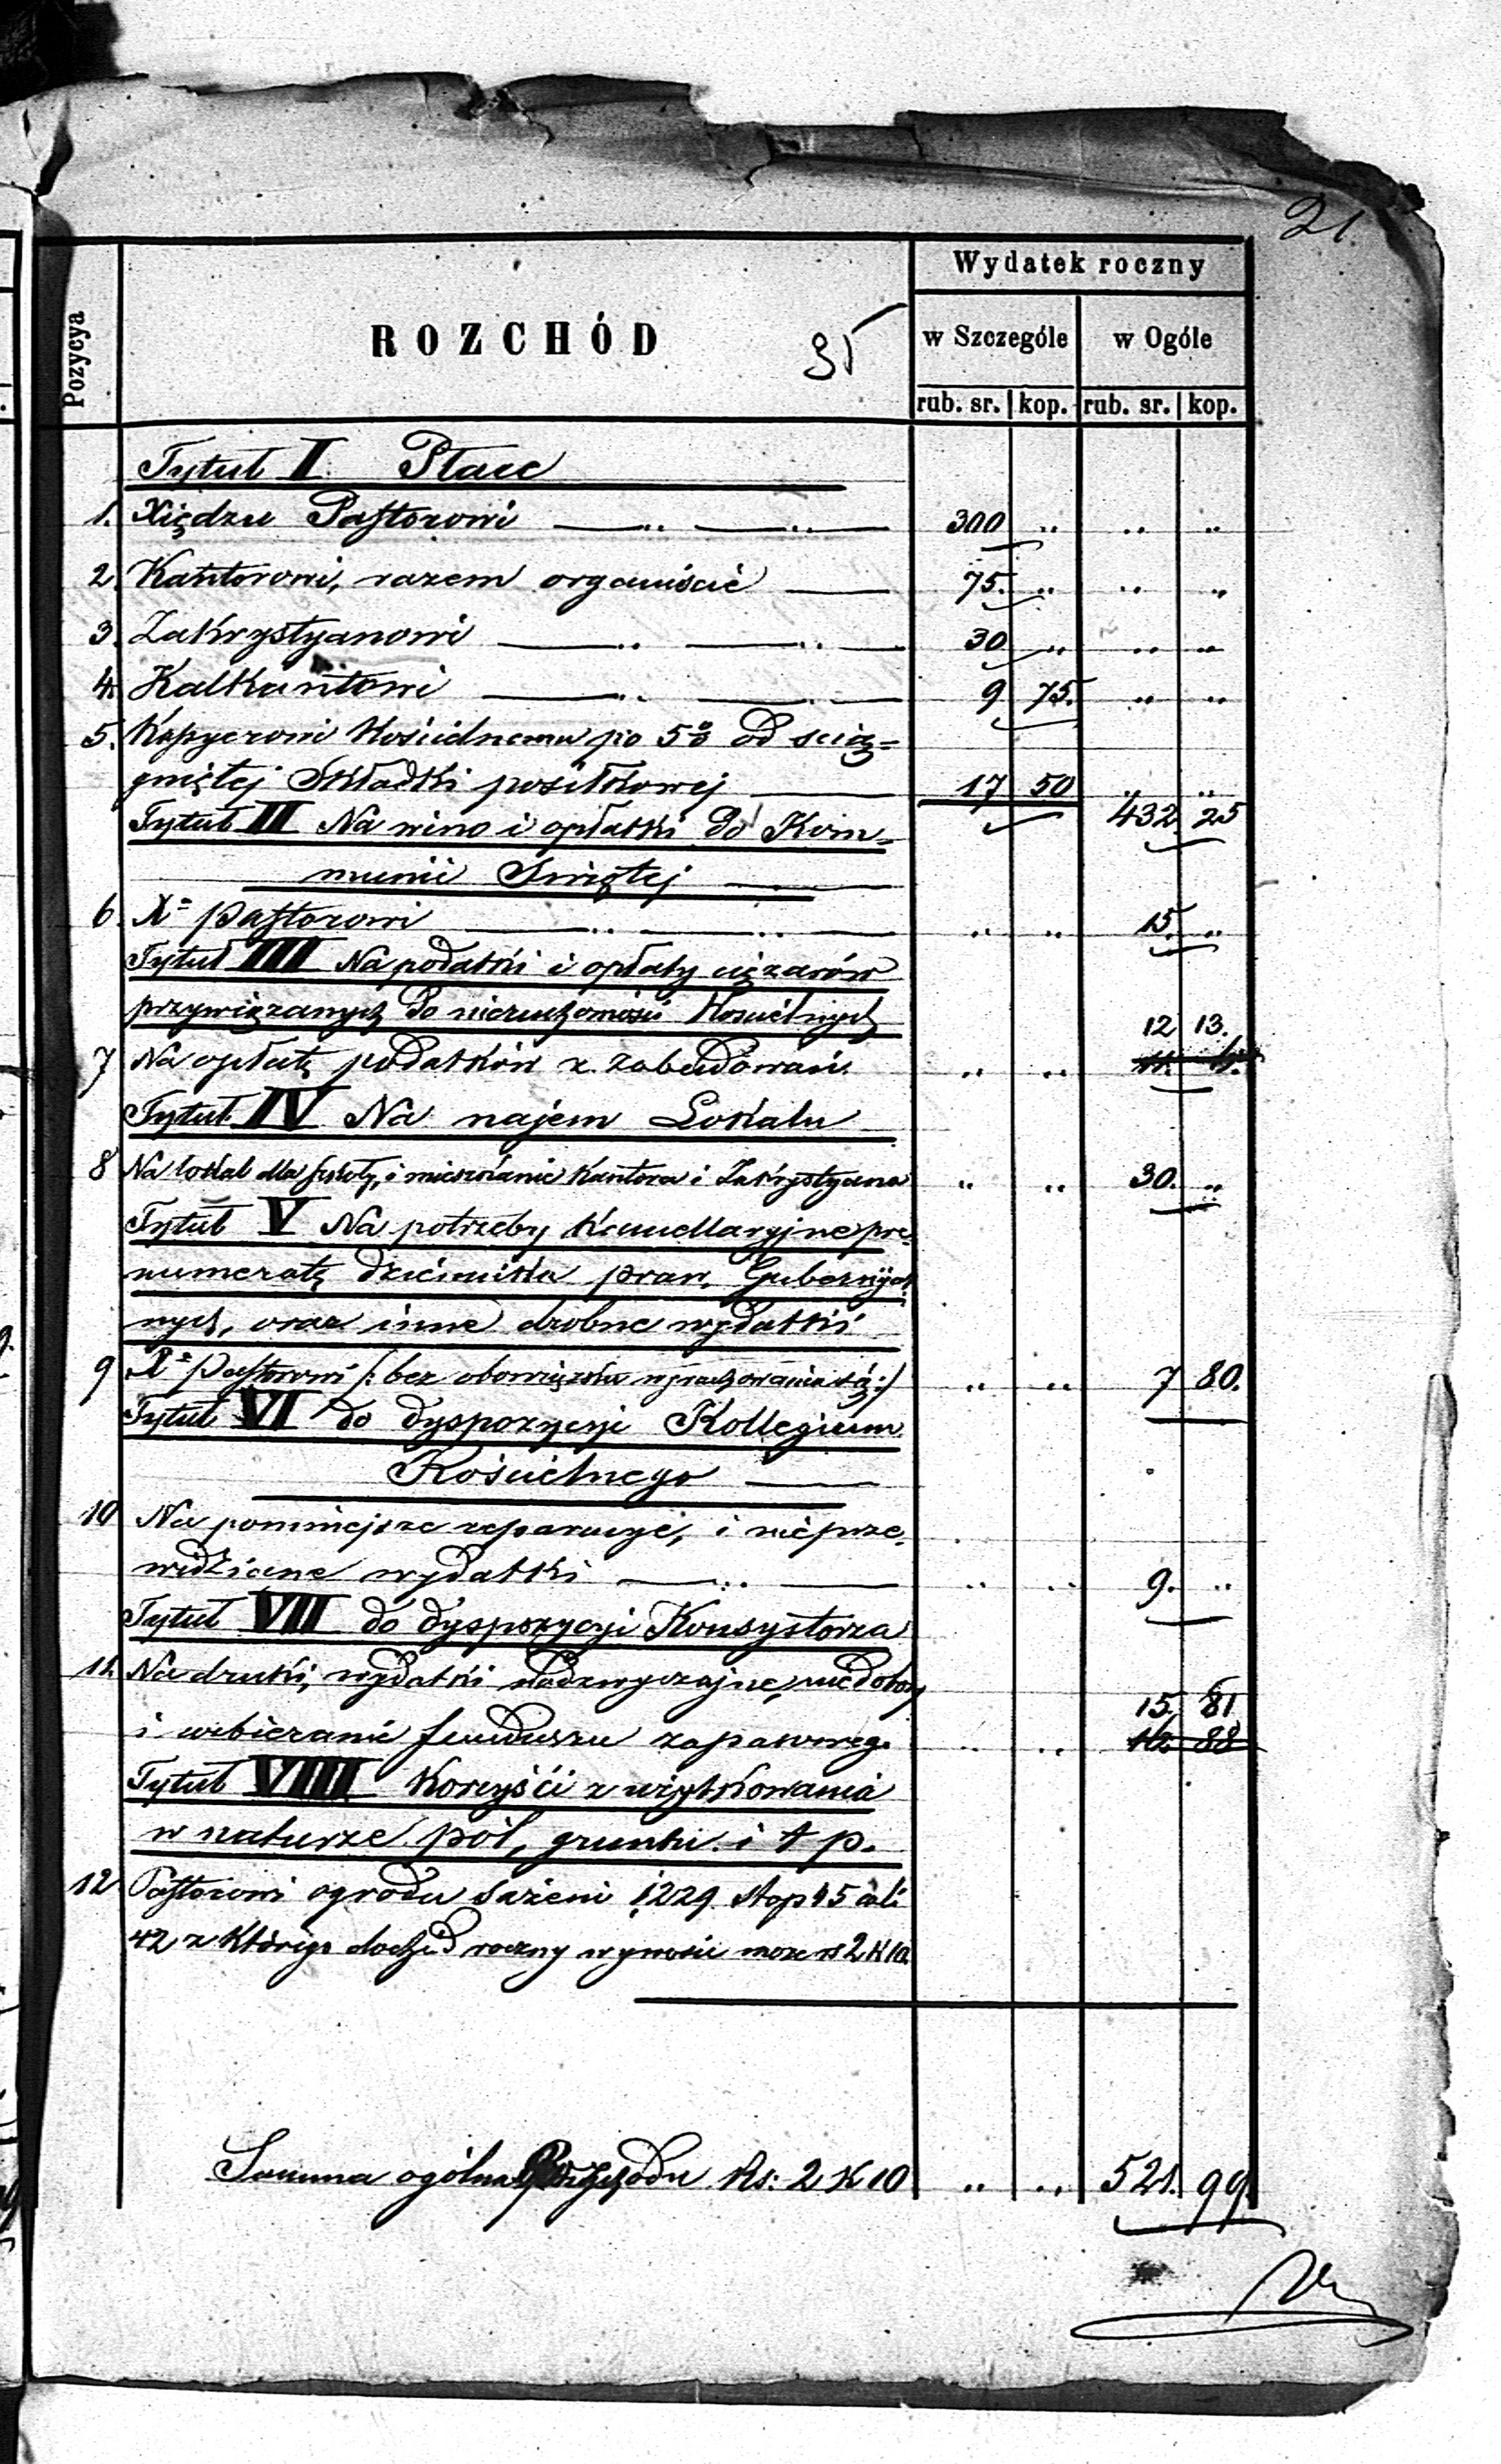 21
Wydatek roczny
Pozycya
ROZCHÓD
35
w Szczególe
w Ogóle
rub. sr. kop. rub. sr. kop.
Tytuł I. Płace
1. Xiędzu Pastorowi — „ — „ — 300 „ „ „
2. Kantorowi, razem organiście — 75. „ „ „
3. Zakrystyanowi — „ — „ — 30 „ „ „
4. Kalkantowi — „ — „ — 9 75. „ „
5. Kassyerowi Kościelnemu po 5% od ścią=
gniętej Składki posiłkowej — 17 50 „ „
Tytuł II Na wino i opłatki do Kom= 432 25
munii Świętej —
6. Xº Pastorowi — „ — „ — „ „ 15. „
Tytuł III Na podatki i opłaty ciężarów
przywiązanych do nieruchomości Kościelnych
12 13.
7 Na opłatę podatków z zabudowań. „ „
Tytuł IV Na najem Lokalu
8 Na lokal dla szkoły, i mieszkanie Kantora i Zakrystyana „ „ 30. „
Tytuł V Na potrzeby Kancellaryjne pre=
numeratę dziennika praw, Gubernijal
nych, oraz inne drobne wydatki
9 Xº Pastorowi (: bez obowiązku wyrachowania się :) „ „ 7 80.
Tytuł VI do dyspozycyi Kollegium
Kościelnego —
10 Na pomniejsze reparacye, i nieprze=
widziane wydatki — „ — „ „ 9. „
Tytuł VII do dyspozycyi Konsystorza
11. Na druki, wydatki nadzwyczajne, niedobory
15. 81
i uzbieranie funduszu zapasowego „ „ 88
Tytuł VIII Korzyści z użytkowania
w naturze pól, gruntu i t p.
12 Pastorowi ogrodu sążeni 1229 stop 45 cali
42 z którego dochód roczny wynosić może rs 2 K 10.
Summa ogólna Rs: 2 K 10 „ „ 521. 99.